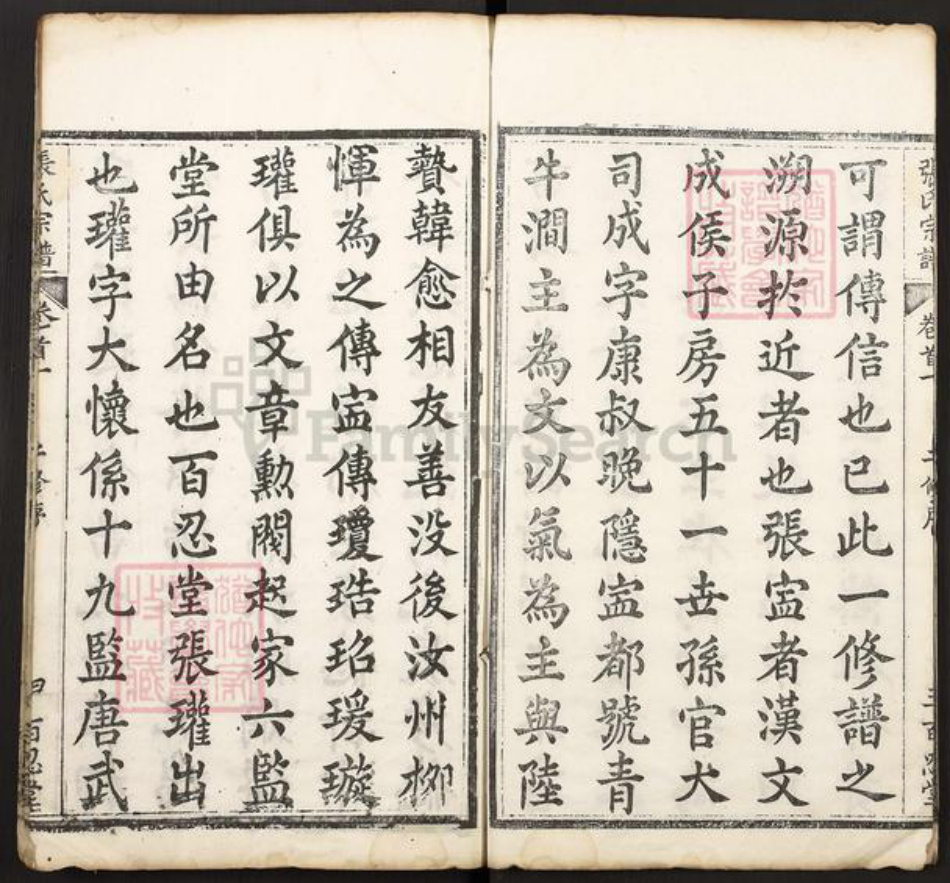 張氏宗譜 卷首一 三百忍堂
可謂傳信也已此一修譜之
溯源於近者也張寍者漢文
成侯子房五十一世孫官大
司成字康叔晚隱寍都號青
牛澗主為文以氣為主與陸
贄韓愈相友善没後汝州栁
惲為之傳寍傳瓊琩玿瑗璇
瓘俱以文章勲閥起家六監
堂所由名也百忍堂張瓘出
也瓘字大懷係十九監唐武
張氏宗譜 卷首一 百忍堂
FamilySearch